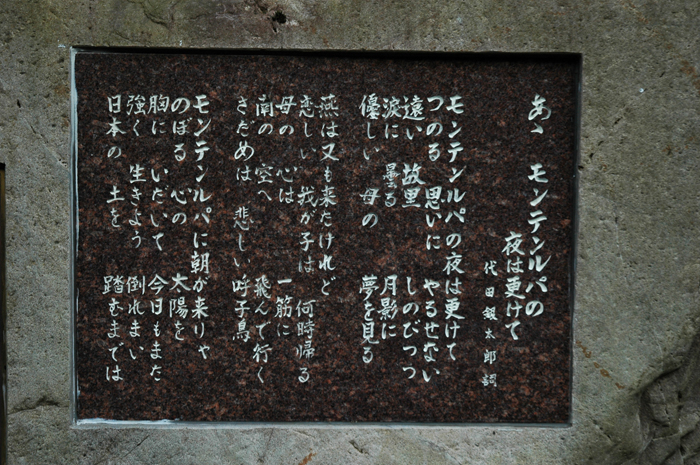 あゝ モンテンルパの
夜は更けて
代田銀太郎 詞
モンテンルパの夜は更けて
つのる 思いに やるせない
遠い 故里 しのびつつ
涙に 曇る 月影に
優しい 母の 夢を見る
燕は又も来たけれど
恋しい 我が子は 何時帰る
母の心は 一筋に
南の 空へ 飛んで行く
さだめは 悲しい 呼子鳥
モンテンルパに朝が来りゃ
のぼる 心の 太陽を
胸に いだいて 今日もまた
強く 生きよう 倒れまい
日本の 土を 踏むまでは